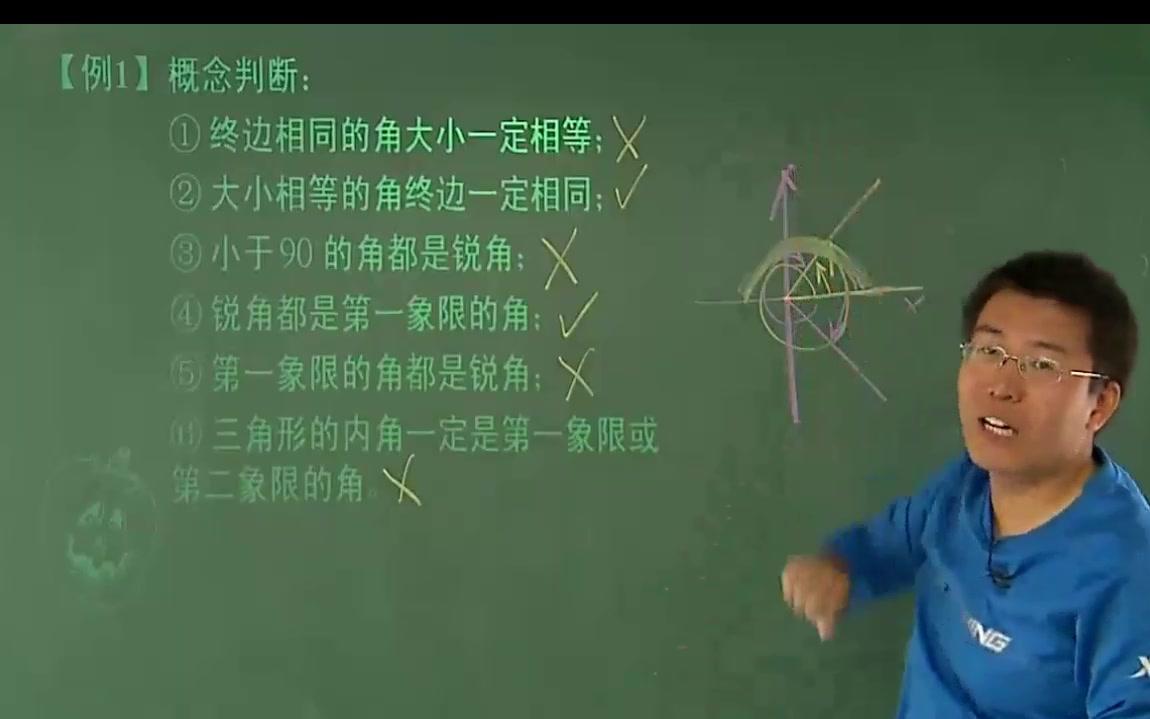 【例1】概念判断：
① 终边相同的角大小一定相等；×
② 大小相等的角终边一定相同；✓
③ 小于90 的角都是锐角；×
④ 锐角都是第一象限的角；✓
⑤ 第一象限的角都是锐角；×
三角形的内角一定是第一象限或
第二象限的角。×
x
ING
X